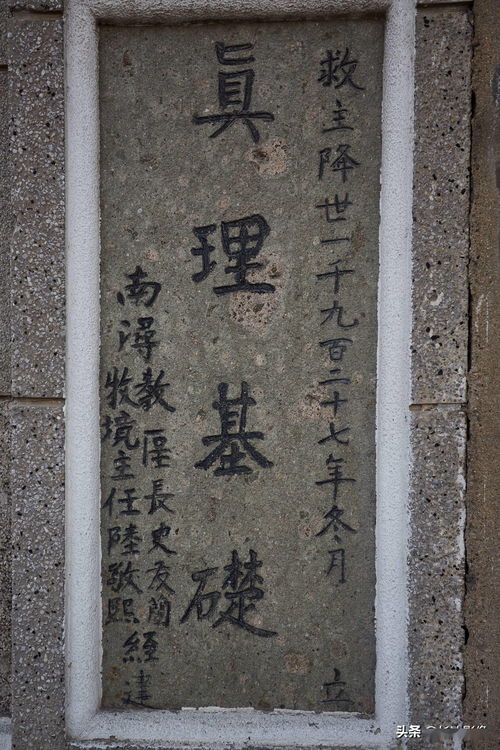 救主降世一千九百二十七年冬月 立
眞理基礎
南潯教區長史友蘭
牧境主任陸敬熙
經建
头条